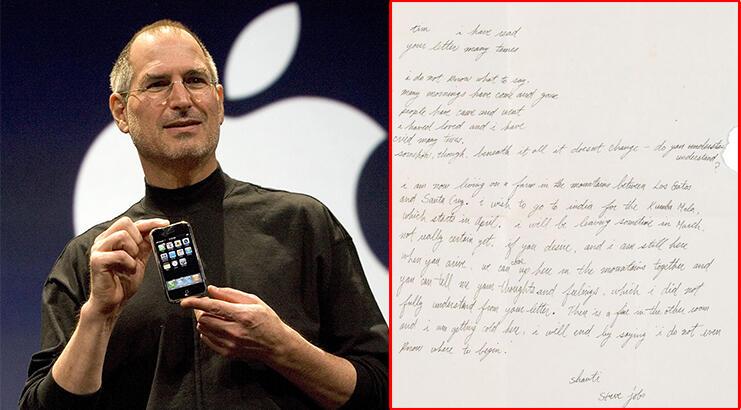 tim i have read
your letter many times
i do not know what to say.
many mornings have come and gone
people have come and went
i haved loved and i have
cried many times.
somehow, though, beneath it all it doesnt change – do you understand
understand?
i am now living on a farm in the mountains between Los Gatos
and Santa Cruz. i wish to go to india for the Kumba Mela,
which starts in April. i will be leaving sometime in March,
not really certain yet. if you desire, and i am still here
when you arive, we can be up here in the mountains together and
you can tell me your thoughts and feelings, which i did not
fully understand from your letter. There is a fire in the other room
and i am getting cold here. i will end by saying i do not even
know where to begin.
shanti
steve jobs